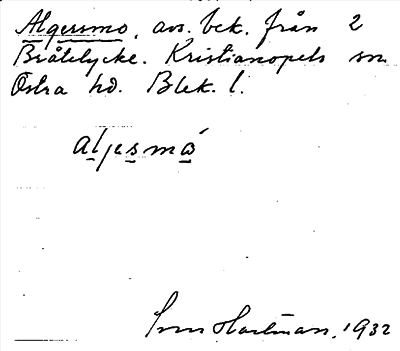 Algersmo, avs. bek. från 2
Bråtelycke. Kristianopels sn
Östra hd. Blek. l.
aljesmó
Sven Hartman, 1932